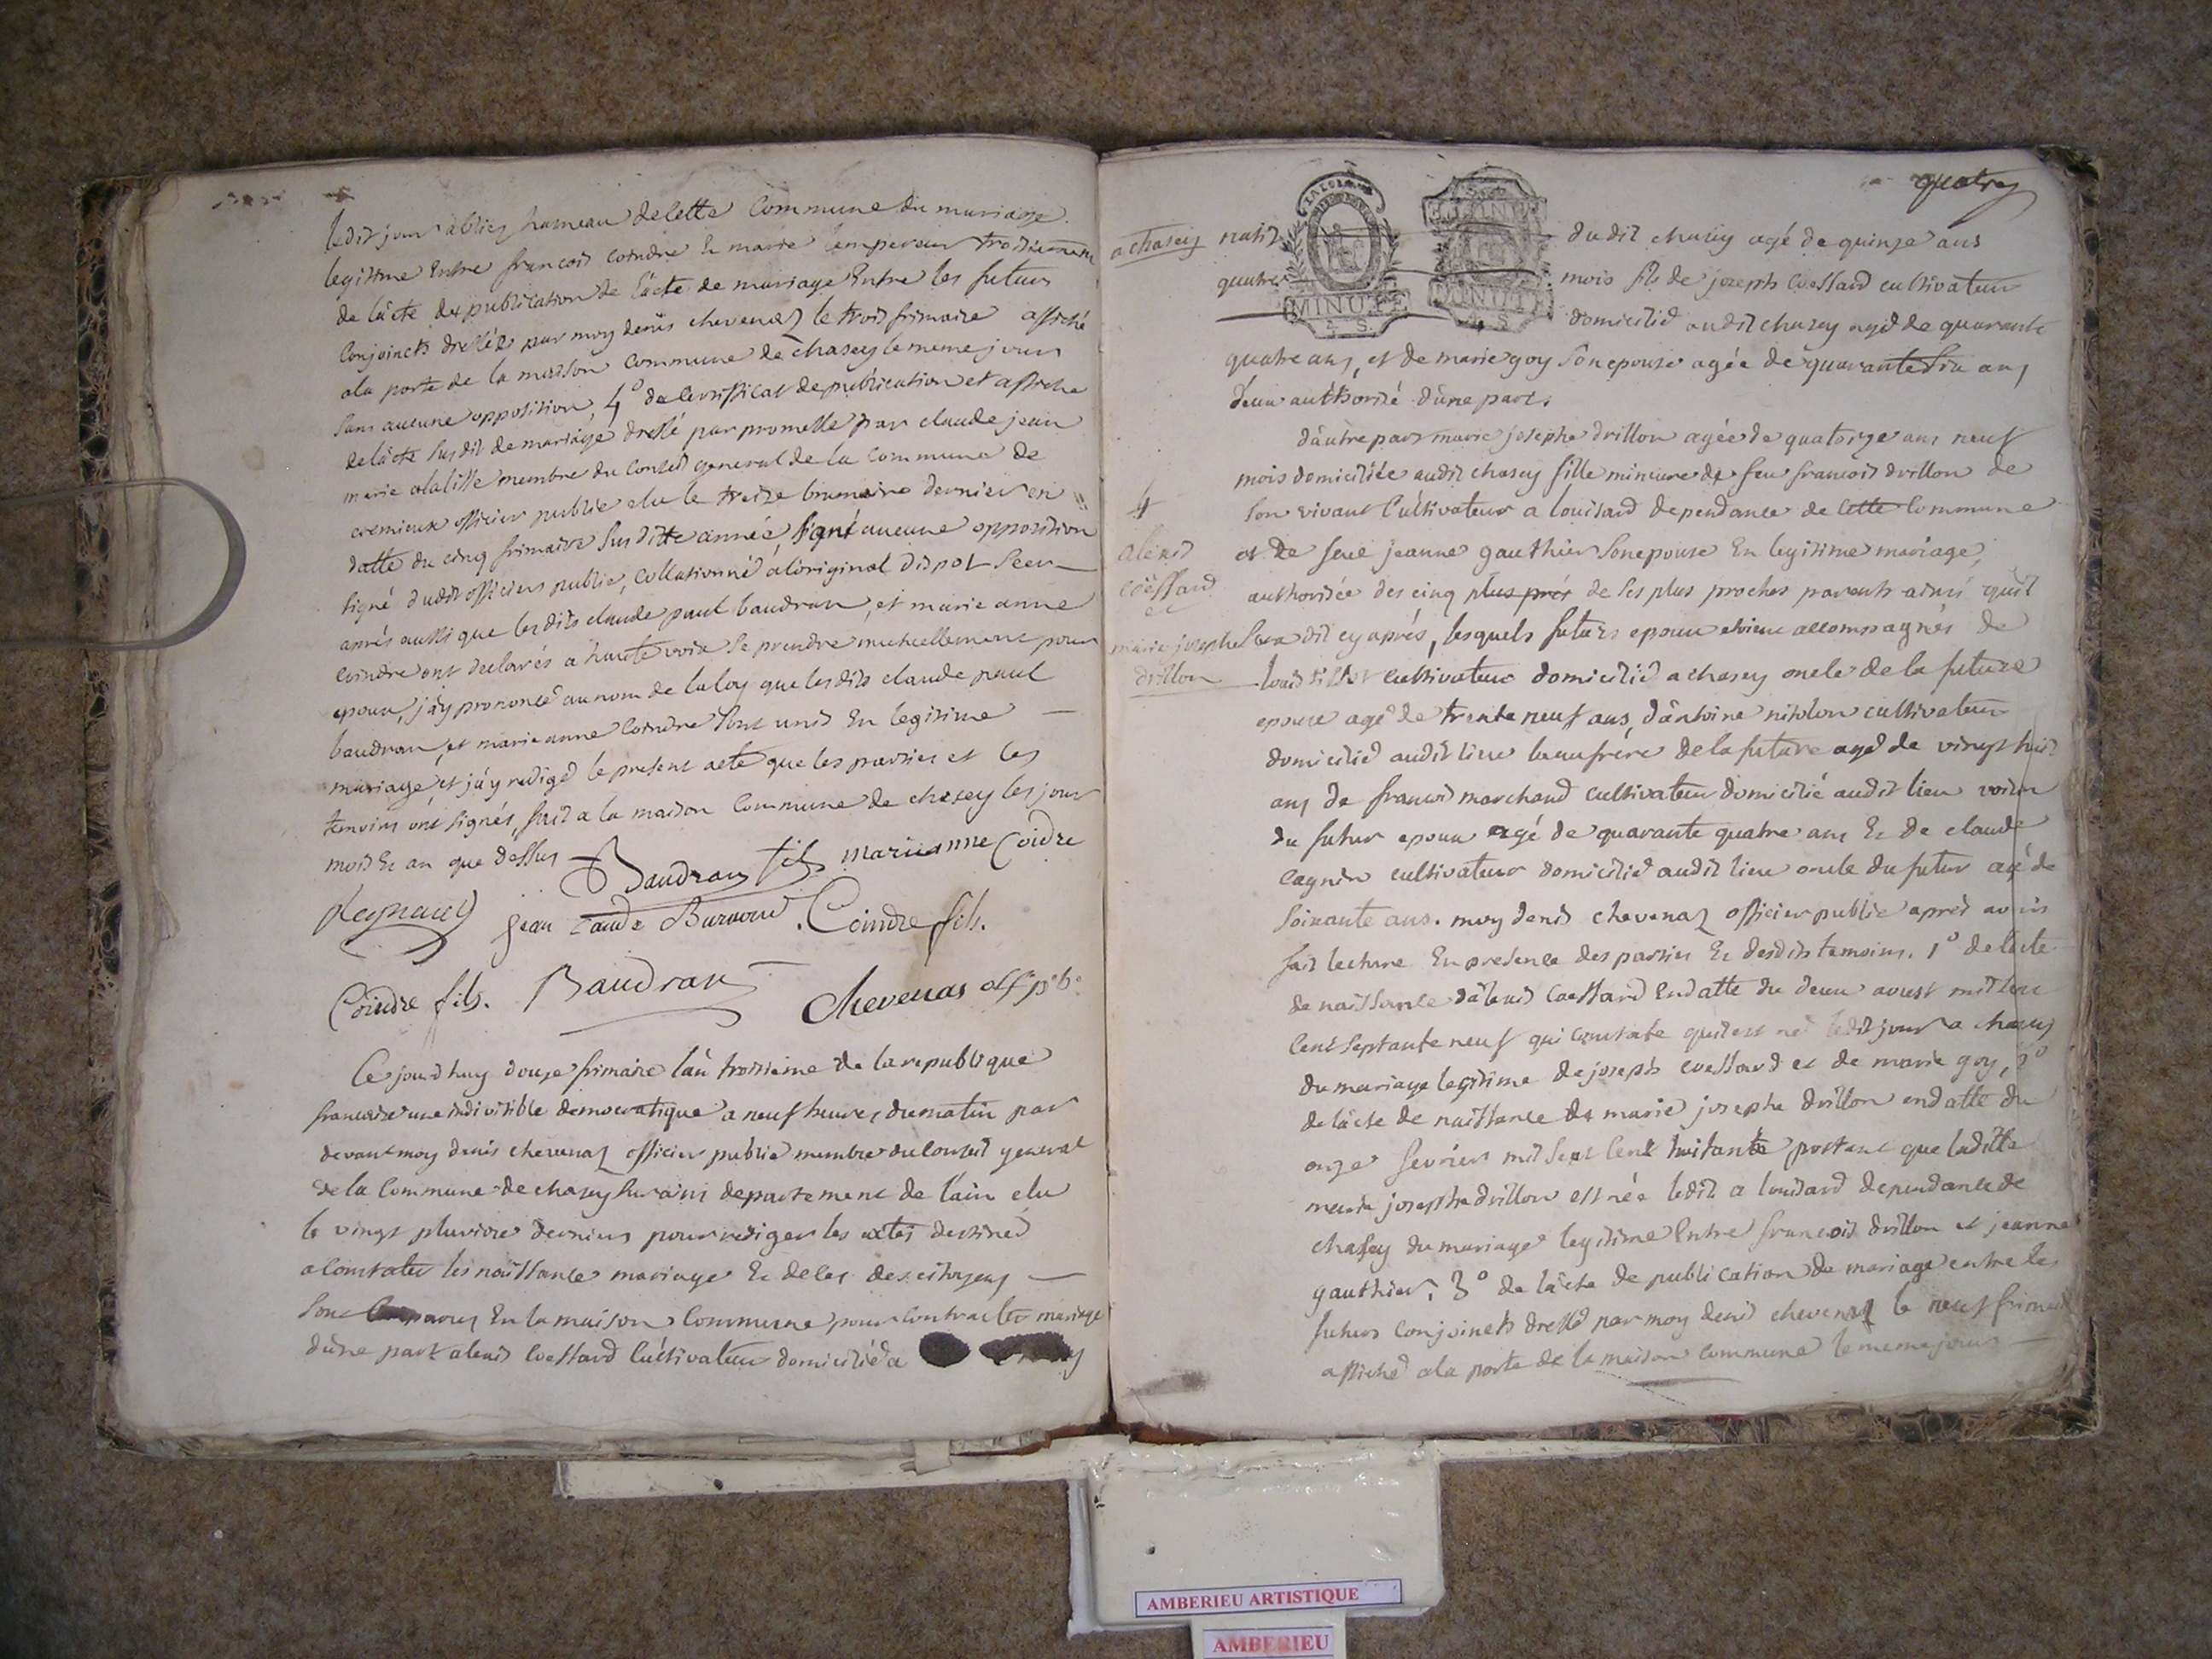 ledit jour a blies hameau de cette Commune du mariage
legitime Entre francois coindre & marie lempereur troisiemement
de lácte de publication de lácte de mariage Entre les futurs
Conjoincts dressées par moy denis chevenaz le trois frimaire affiché
ala porte de la maison Commune de chasey le meme jour
sans aucune opposition, 4° du Certifficat de publication et affiche
de lácte susdit de mariage dressé par promesse par claude jean
marie membre du Conseil general de la Commune de
cremieux officier public elu le treize brumaire dernier en
datte du cinq frimaire susditte année, signé aucune opposition
signé dudit officier public, Collationné a loriginal
aprés aussi que lesdits claude paul baudran, et marie anne
coindre ont declarés a haute voix se prendre mutuellement pour
epoux, j'ay prononcé au nom de la loy que lesdits claude paul
baudran, et marie anne Coindre sont unis En legitime —
mariage et j'ay redigé le present acte que les parties et les
temoins ont signés, fait a la maison Commune de chasey les jour
mois & an que dessus
Baudran fils marianne Coidre
Reynaud jean Claude Coindre fils.
Coindre fils. Baudran chevenas off pb.
Ce jourdhuy douze frimaire lán troisieme de la republique
francoise une indivisible democratique a neuf heures du matin par
devant moy denis chevenaz officier public membre du conseil general
de la Commune de chasey sur ains departement de l'ain elu
le vingt pluviose dernier pour rediger les actes destinés
a Constater les naissance mariage & deces des citoyens —
sont En la maison Commune pour contracter mariage
dúne part alexis Coessard Cultivateur domicilié a
quatre
a chasey natif dudit chasey agé de quinze ans
quatre mois fils de joseph Coessard cultivateur
domicilié audit chasey agé de quarante
quatre ans, et de marie goy son epouse agée de quarante six ans
deux authorisé dúne part.
dáutre part marie josephe drillon agée de quatorze ans neuf
mois domiciliée audit chasey fille mineure de feu francois drillon de
son vivant Cultivateur a louisard dependance de cette Commune
et de feue jeanne gauthier son epouse En legitime mariage,
authorisée des cinq plus prés de ses plus proches parents ainsi quil
sera dit cy aprés, lesquels futurs epoux etoient accompagnés de
louis cultivateur domicilié a chasey oncle de la future
epouse agé de trente neuf ans, dántoine cultivateur
domicilié audit lieu beaufrere de la future agé de vingt huit
ans de francois marchand cultivateur domicilié audit lieu voisin
du futur epoux agé de quarante quatre ans & de claude
cagnin cultivateur domicilié audit lieu oncle du futur agé de
soixante ans. moy denis chevenaz officier public aprés avoir
fait lecture En presence des parties & desdits temoins. 1° de lácte
de naissance dálexis Coessard En datte du deux aoust mil sept
Cent septante neuf qui constate quil est né ledit jour a chasey
du mariage legitime de joseph coessard et de marie goy, 2°
de lácte de naissance de marie josephe drillon en datte du
onze fevrier mil sept Cent huitante portant que laditte
marie josephe drillon est née ledit a louisard dependance de
chasey du mariage legitime Entre francois drillon et jeanne
gauthier. 3° de lácte de publication de mariage entre les
futurs conjoincts dressé par moy denis chevenaz le neuf frimaire
affiché ala porte de la maison Commune le meme jour —
4
alexis
coessard
et
marie josephe
drillon
MINUTE
MINUTE
AMBERIEU ARTISTIQUE
AMBERIEU